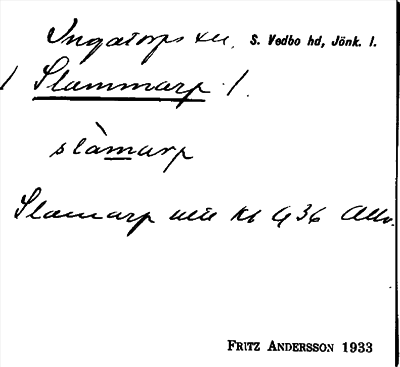 Ingatorps sn. S. Vedbo hd, Jönk. l.
/ Slammarp /.
slàmarp
Slamarp
FRITZ ANDERSSON 1933